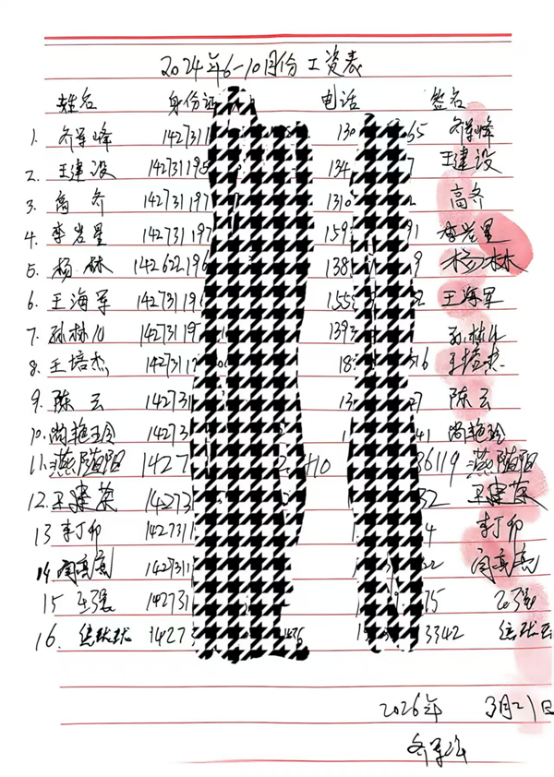 2024年6-10月份工资表
姓名 身份证 电话 签名
1. 乔军峰 1427311 130 65 乔军峰
2. 王建设 142731195 134 7 王建设
3. 高乔 142731197 1310 高乔
4. 李岩星 142731197 159 91 李岩星
5. 杨林 142622196 138 9 杨林
6. 王海军 14273196 155 2 王海军
7. 孙林 14273119 1393 孙林
8. 王培杰 1427311 18 16 王培杰
9. 陈云 142731 13 7 陈云
10. 尚艳玲 14273 1 41 尚艳玲
11. 燕随阳 1427 410 36119 燕随阳
12. 王建荣 14273 32 王建荣
13 李丁卯 1427311 4 李丁卯
14 闫亮亮 1427311 2 闫亮亮
15 王强 142731 75 王强
16. 14273 3342
2026年 3月21日
乔军峰